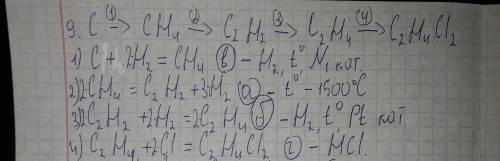 9. C (1)→ CH4 (2)→ C2H2 (3)→ C2H4 (4)→ C2H4Cl2
1) C + 2H2 = CH4 (в) – H2, t°, Ni кат.
2) 2CH4 = C2H2 + 3H2 (а) – t° – 1500°C
3) 2C2H2 + 2H2 = 2C2H4 (б) – H2, t°, Pt кат.
4) C2H4 + 2Cl = C2H4Cl2 (г) – HCl.